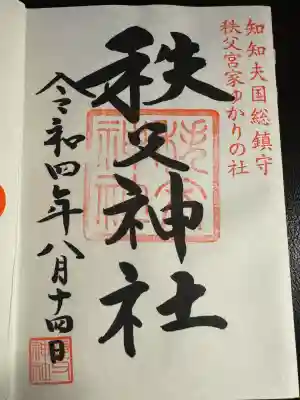 知知夫国総鎮守
秩父宮家ゆかりの社
秩父神社
令和四年八月十四日
秩父
神社